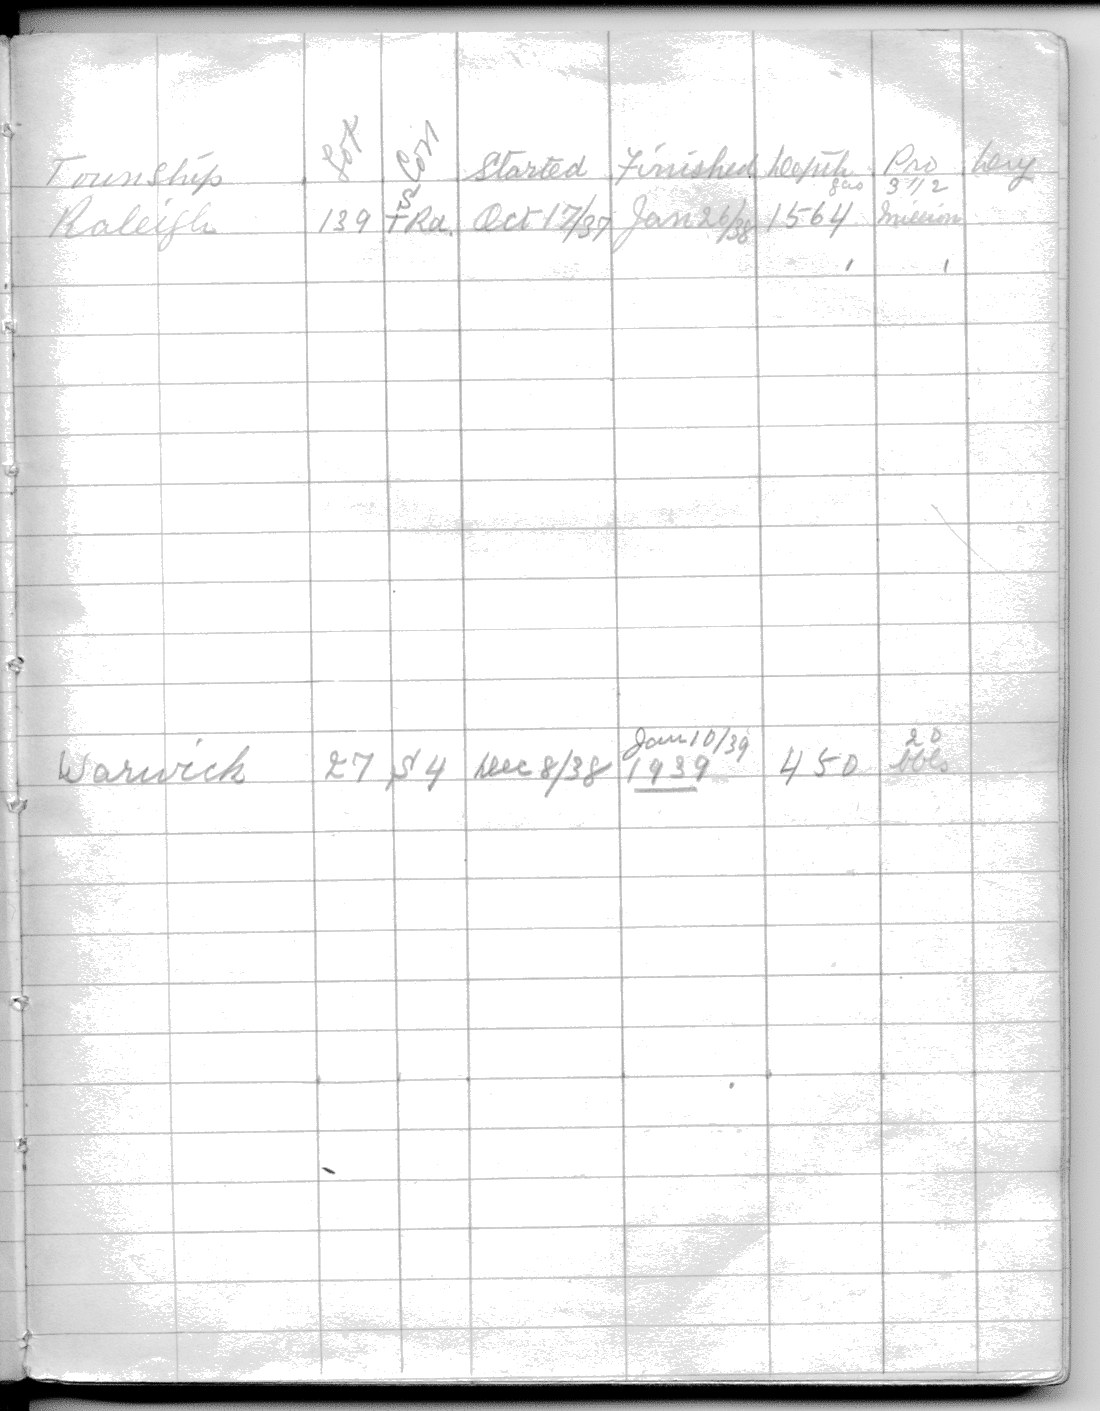 Township Lot Con Started Finished Depth Pro Dry
gas 3 1/2
Raleigh 139 T Rd. Oct 17/37 Jan 26/38 1564 million
Jan 10/39 20
Warwick 27 S 4 Dec 8/38 1939 450 bbls